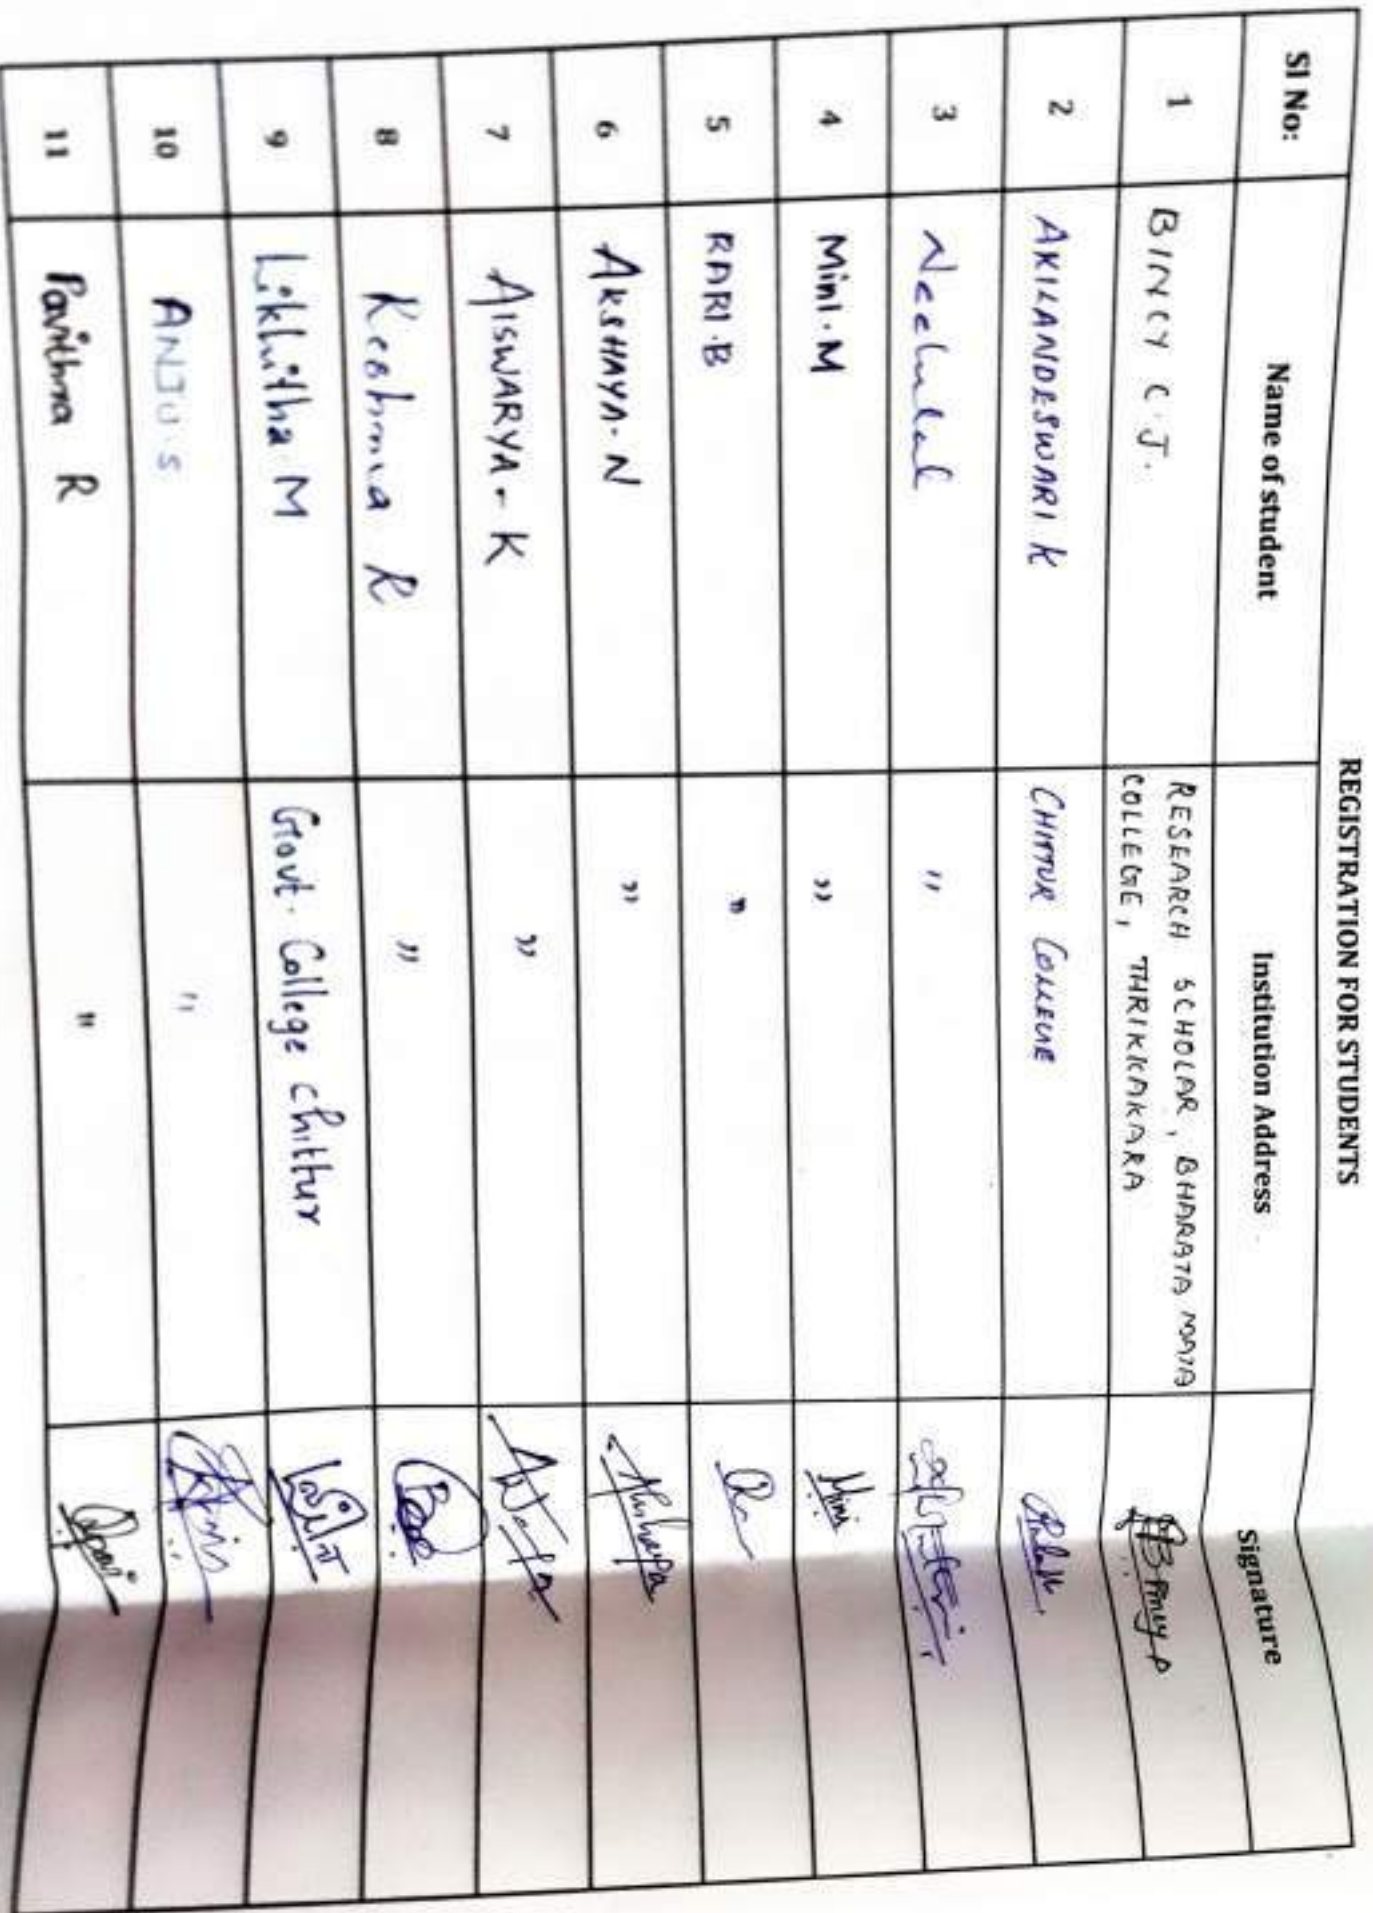 REGISTRATION FOR STUDENTS
Sl No: Name of student Institution Address Signature
1 BINCY C.J. RESEARCH SCHOLAR, BHARATA MATA
COLLEGE, THRIKKAKARA
2 AKILANDESWARI K CHITTUR COLLEGE
3 "
4 Mini.M " Mini
5 RARI.B "
6 AKSHAYA.N " Akshaya
7 AISWARYA.K "
8 Reshma R "
9 Likhitha M Govt. College chittur
10 ANJU.S "
11 Pavithra R "